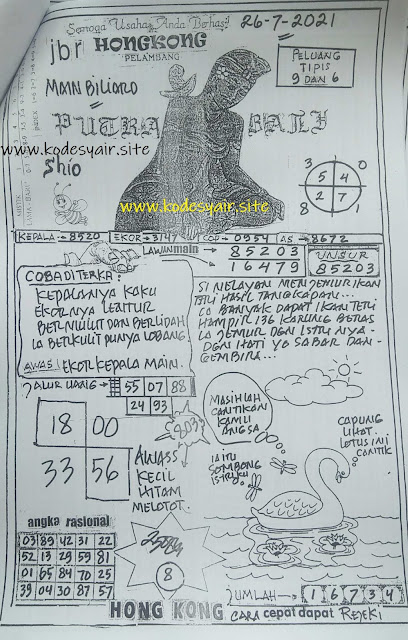 Semoga Usaha Anda Berhasil
26-7-2021
jbr HONGKONG
PELAMBANG
PELUANG
TIPIS
9 DAN 6
MAIN BILIARD
PUTRA BALI
www.kodesyair.site
Shio
www.kodesyair.site
3 0
5 4
2 7
8
KEPALA → 8520 EKOR → 3147 COP → 0954 AS → 8672
LAWAN main → 85203
16479
UNSUR
85203
COBA DITERKA:
KEPALANYA KAKU
EKORNYA LENTUR
BERMULUT DAN BERLIDAH
IA BERKULIT PUNYA LOBANG
AWAS! EKOR KEPALA MAIN.
SI NELAYAN MENJEMUR IKAN
TERI HASIL TANGKAPAN...
IA BANYAK DAPAT IKAN TERI
HAMPIR 136 KARUNG BERAS
IA JEMUR DGN ISTRI NYA.
DGN HATI YG SABAR DAN
GEMBIRA...
JALUR UANG → 55 07 88
24 93
18 00
33 56
8032
AWASS
KECIL
HITAM
MELOTOT.
MASIHLAH
CANTIKAN
KAMU
ANGSA
IA ITU
SOMBONG
ISTRIKU
CAPUNG
LIHAT.
LOTUS INI
CANTIK
angka rasional
03 89 42 31 22
52 13 29 59 81
01 65 84 70 25
39 04 30 87 57
8
JUMLAH → 1 6 7 3 4
HONG KONG CARA cepat dapat REJEKI